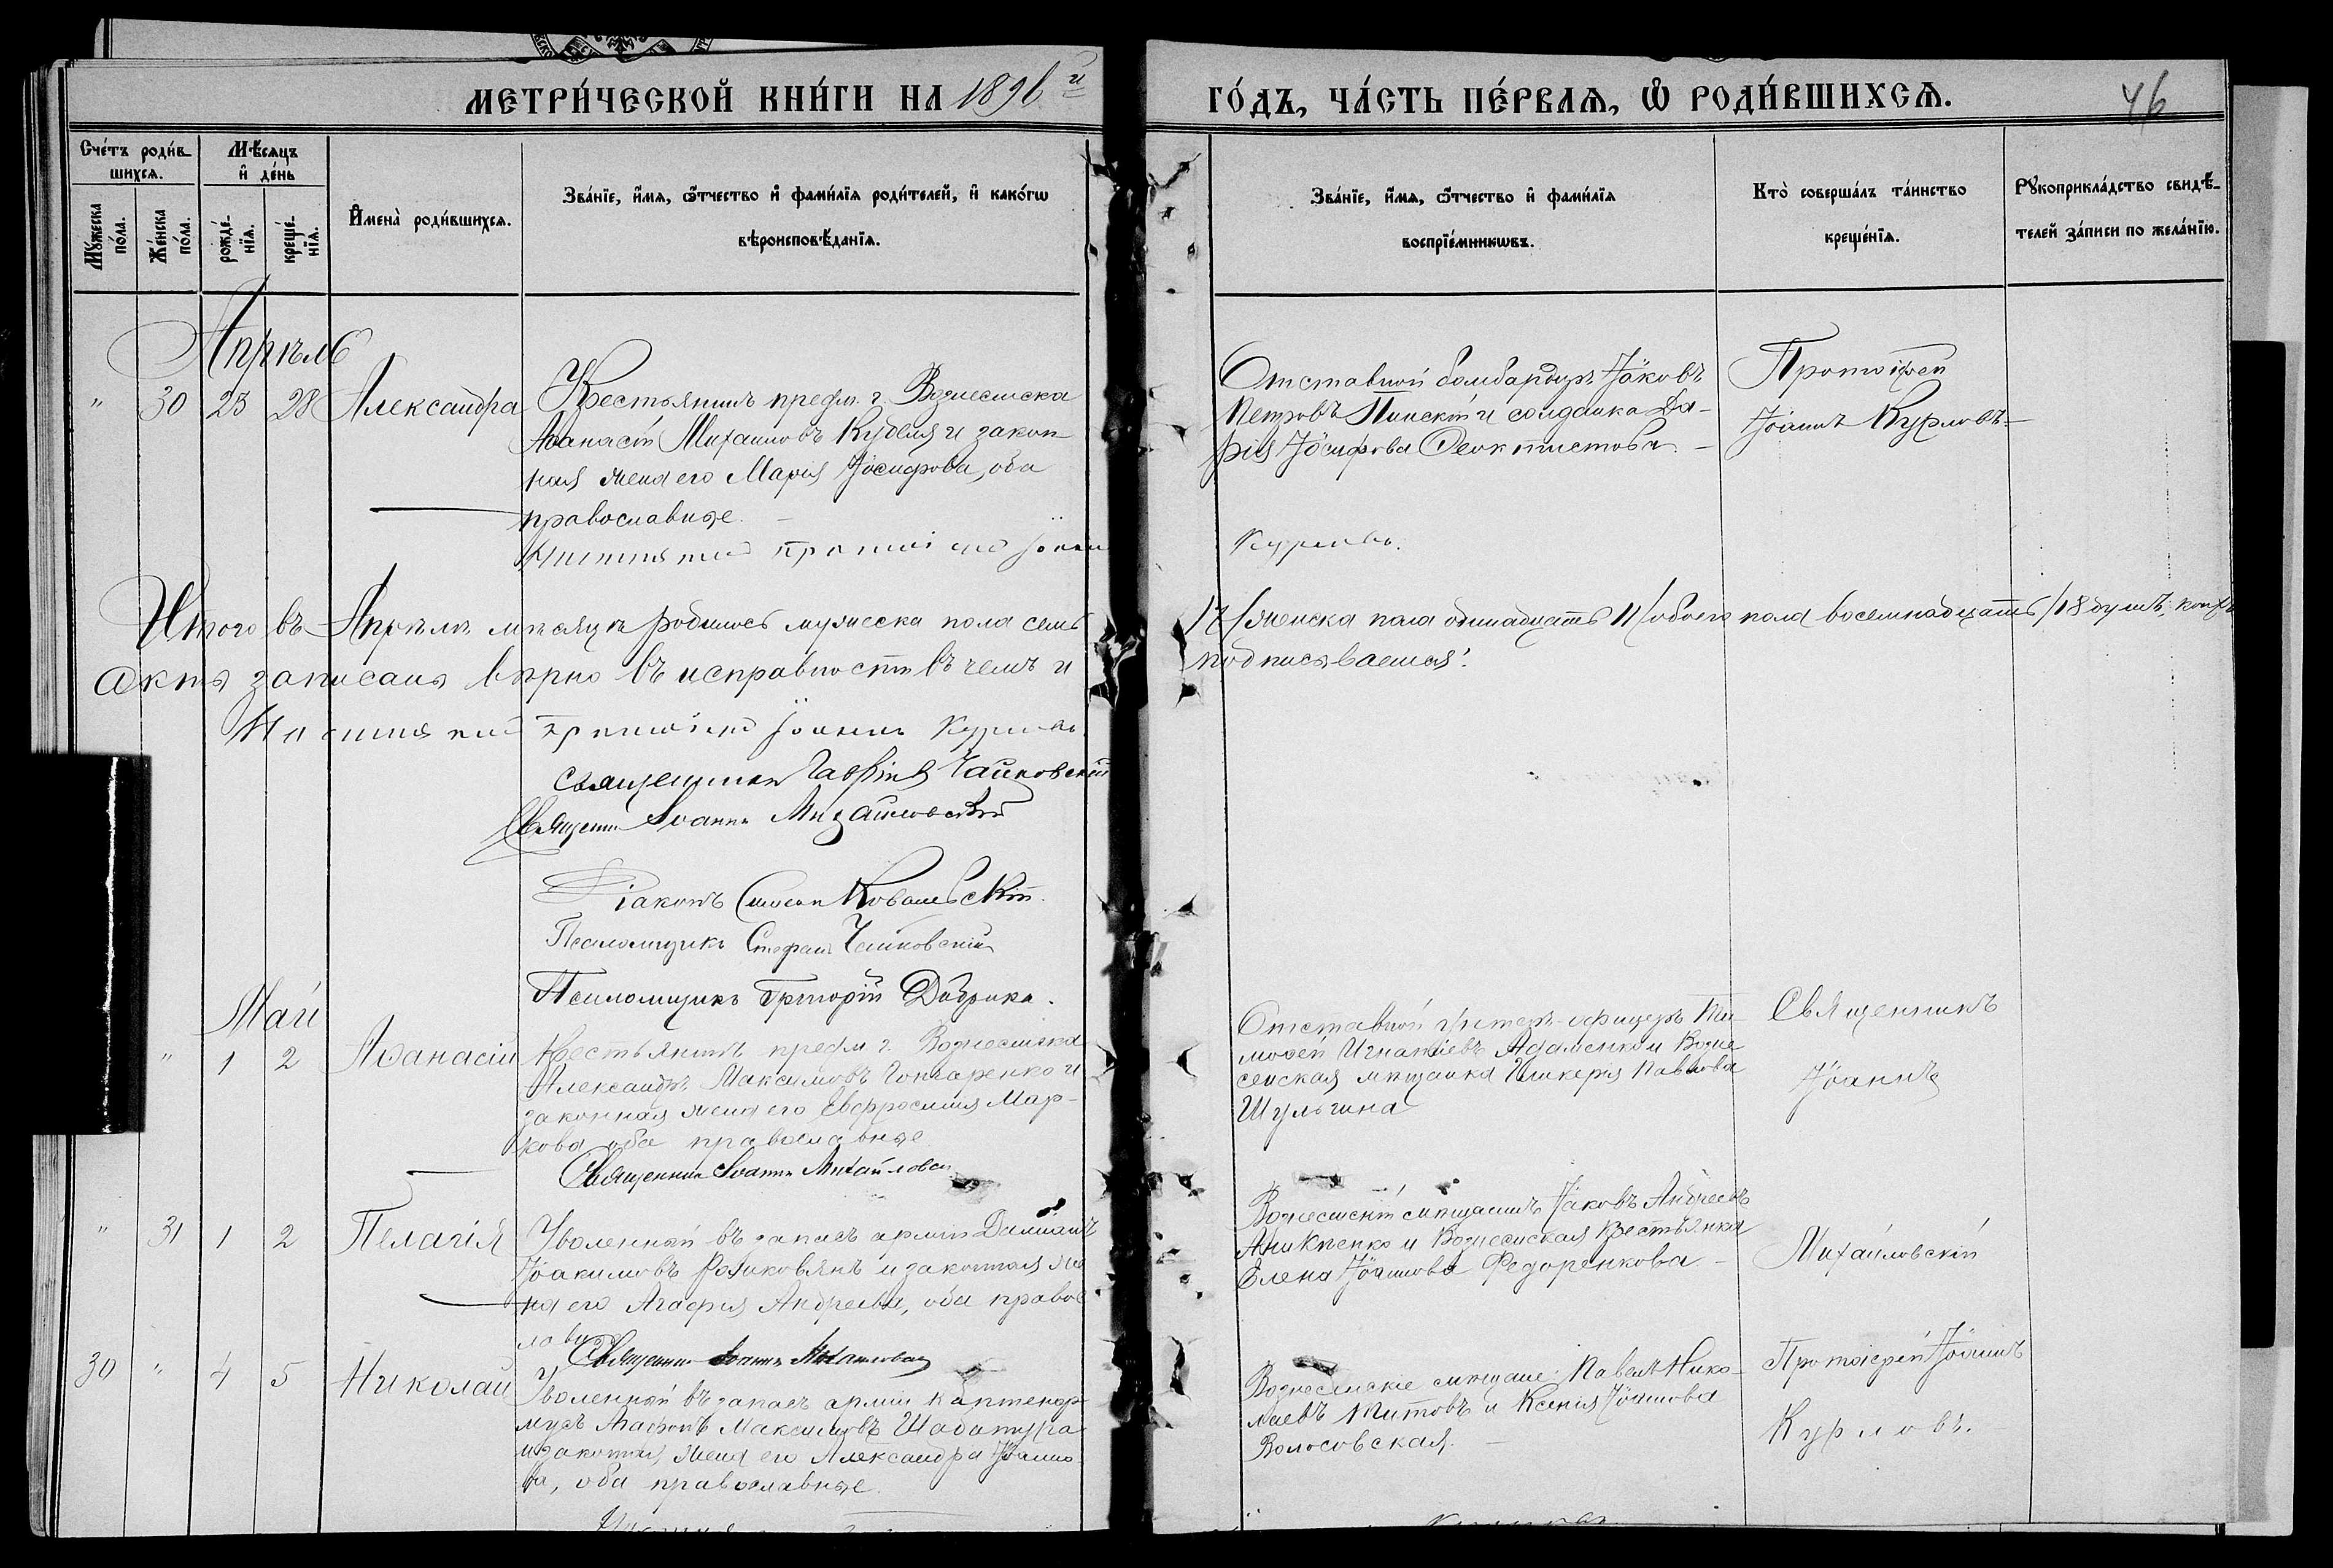 МЕТРИ́ЧЕСКОЙ КНИ́ГИ НА 1896 й
ГО́ДЪ, ЧА́СТЬ ПЕ́РВАѦ, Ѡ РОДИ́ВШИХСѦ.
46
Сче́тъ роди́в-
шихсѧ.
Мѣ́сѧцъ
и де́нь
Мꙋ́жеска
по́ла.
Же́нска
по́ла.
рожде́-
нїѧ.
креще́-
нїѧ.
Имена̀ роди́вшихсѧ.
Зва́нїе, и́мѧ, ѻ́тчество и фами́лїѧ роди́телей, и како́гѡ
вѣроисповѣ́данїѧ.
Зва́нїе, и́мѧ, ѻ́тчество и фами́лїѧ
воспрїе́мникѡвъ.
Кто̀ соверша́лъ та́инство
креще́нїѧ.
Рꙋкоприкла́дство свидѣ́-
телей за́писи по жела́нїю.
Апрѣль
" 30 25 28 Александра
Крестьянинъ предм. г. Вознесенска
Аѳанасій Михаиловъ Кубля и закон-
ная жена его Марія Іосифова, оба
православные.
протоіерей Іоаннъ
Отставной бомбардиръ Іаковъ
Петровъ Пинскій и солдатка Да-
рія Іосифова Ѳеоктистова. –
Протоіерей
Іоаннъ Курловъ –
Курловъ.
Итого въ Апрѣлѣ мѣсяцѣ родилось мужеска пола семь
/7/ женска пола одинадцать /11/ обоего пола восемнадцать /18 душъ,
акты записаны вѣрно въ исправности въ чемъ и
подписываемся:
протоіерей Іоаннъ Курловъ
Священникъ Гавріилъ Чайковскій
Священникъ Іоаннъ Михайловскій
Діаконъ Симеон Ковалевскій.
Псаломщикъ Стефанъ Чайковскій
Псаломщикъ Григорій Дибрика.
Май
" 1 2 Аѳанасій
Крестьянинъ предм. г. Вознесенска
Александръ Максимовъ Гончаренко и
законная жена его Евфросинія Мар-
кова оба православные
Священникъ Іоаннъ Михайловскій
Отставной унтеръ-офицеръ Ти-
моѳей Игнатіевъ Адаменко и Возне
сенская мѣщанка Гликерія Павлова
Шульгина
Священникъ
Іоаннъ
" 31 1 2 Пелагія
Уволенный въ запасъ арміи Даміанъ
Іоакимовъ и законная же
на его Агафія Андреева, оба правос
лавн
Священникъ Іоаннъ Михайловскій
Вознесенскій мѣщанинъ Іаковъ Андреевъ
Аникіенко и Вознесенская крестьянка
Елена Іоаннова Федоренкова –
Михайловскій
30 " 4 5 Николай
Уволенный въ запасъ арміи каптенар-
мусъ Агафонъ Максимовъ Шабатура
и законная жена его Александра Іоанно
ва, оба православные.
Вознесенскіе мѣщане: Павелъ Нико-
лаевъ Титовъ и Ксенія Іоаннова
Волосовская. –
Протоіерей Іоаннъ
Курловъ.